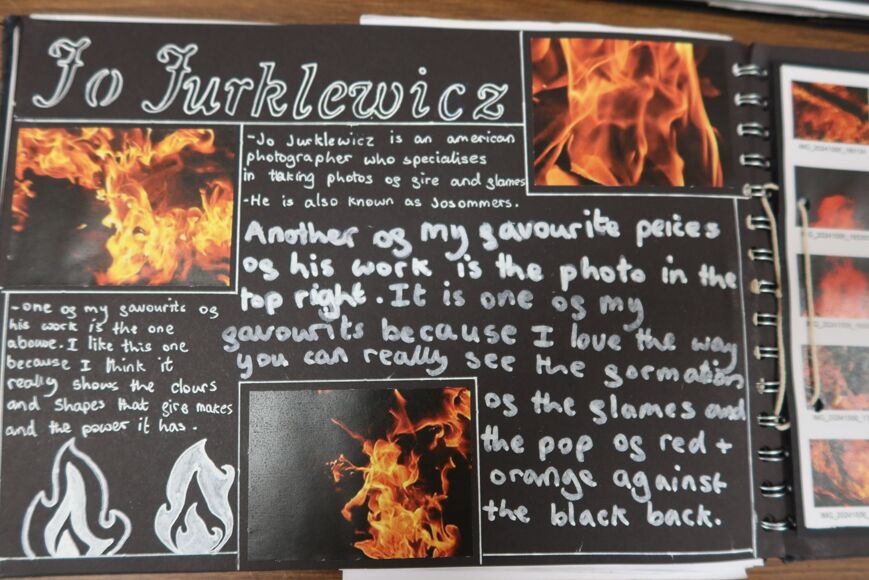 Jo Jurklewicz
-Jo Jurklewicz is an american
photographer who specialises
in taking photos of fire and flames
-He is also known as Josommers.
Another of my favourite peices
of his work is the photo in the
top right. It is one of my
favourits because I love the way
you can really see the formation
of the flames and
the pop of red +
orange against
the black back.
-one of my favourite of
his work is the one
above. I like this one
because I think it
really shows the clours
and shapes that fire makes
and the power it has.